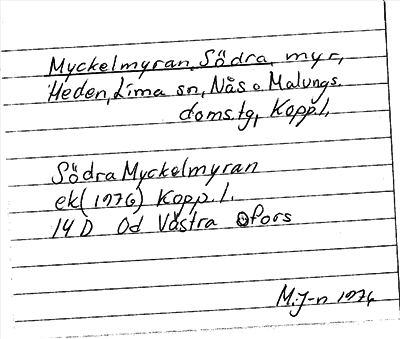 Myckelmyran, Södra, myr,
Heden, Lima sn, Nås o. Malungs.
doms.tg, Kopp.l.
Södra Myckelmyran
ek (1976) Kopp.l.
14 D Od Västra Ofors
M.J-n 1976